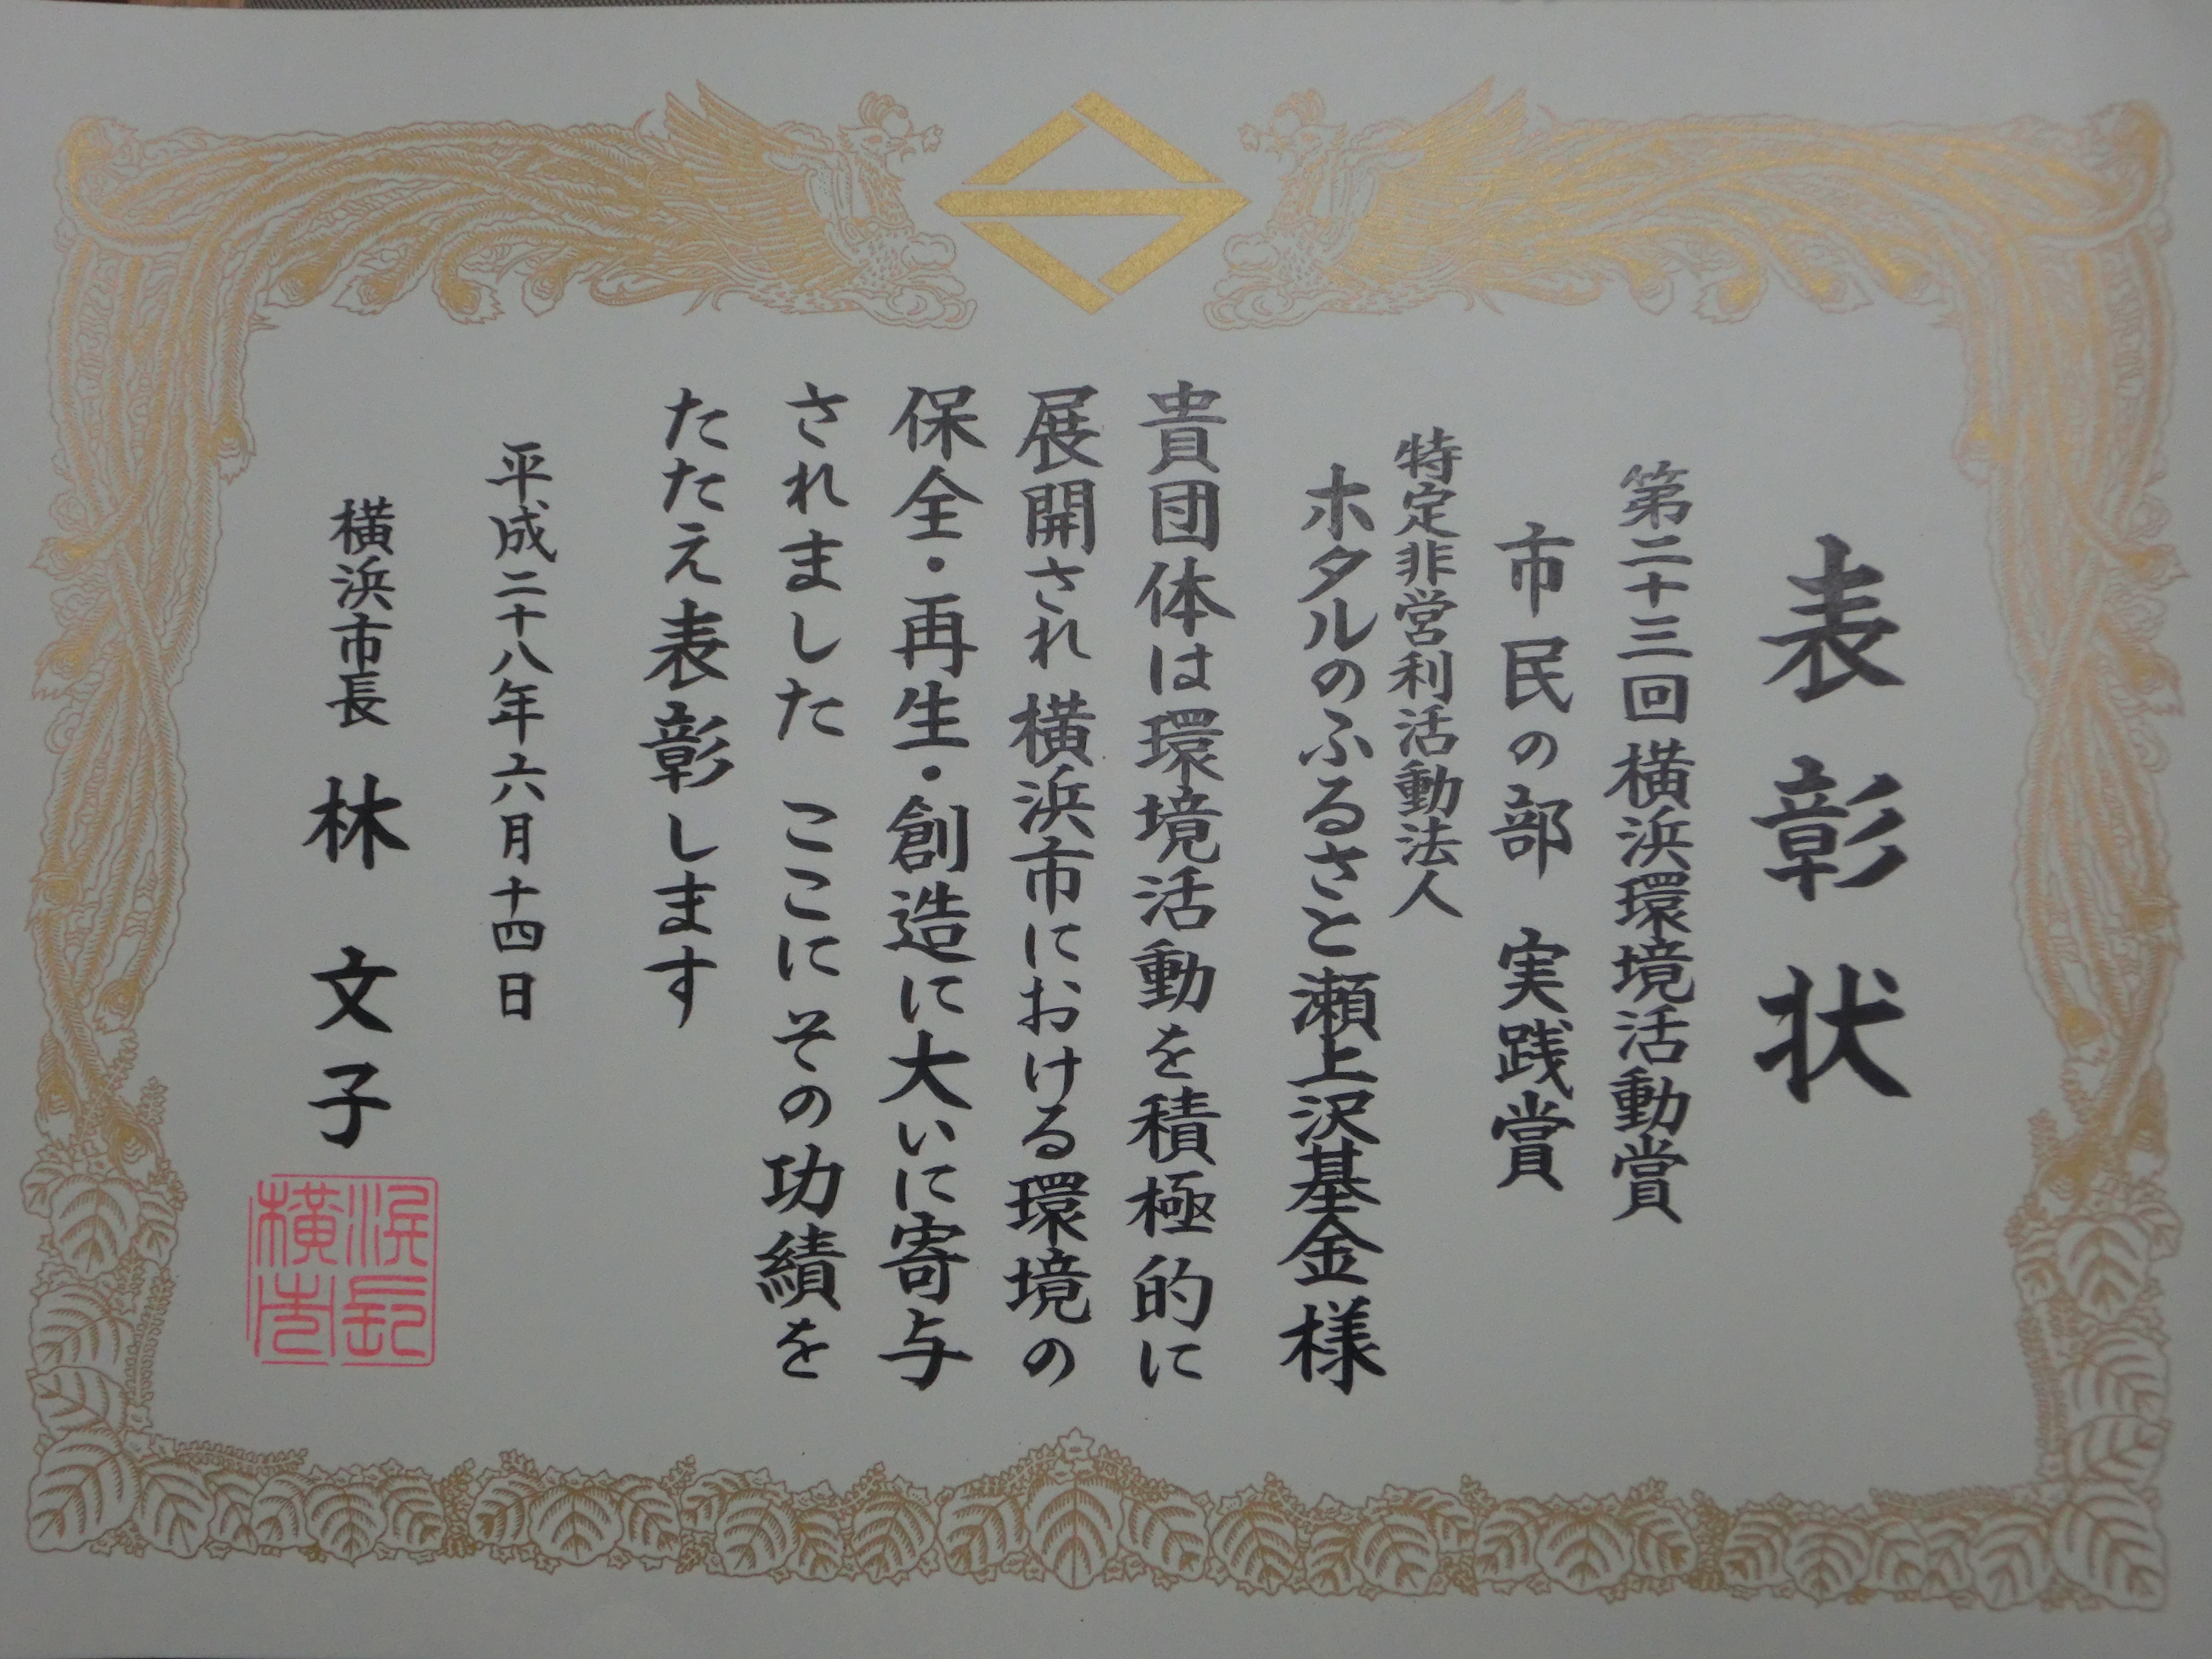 表彰状
第二十三回横浜環境活動賞
市民の部 実践賞
特定非営利活動法人
ホタルのふるさと瀬上沢基金様
貴団体は環境活動を積極的に
展開され横浜市における環境の
保全・再生・創造に大いに寄与
されました ここにその功績を
たたえ表彰します
平成二十八年六月十四日
横浜市長 林 文子
横浜市長